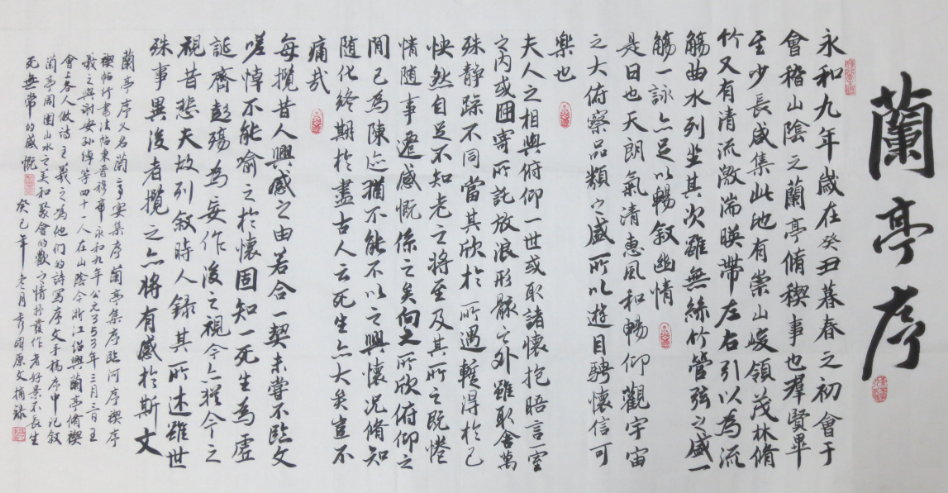 蘭亭序
永和九年歲在癸丑暮春之初會于
會稽山陰之蘭亭脩稧事也羣賢畢
至少長咸集此地有崇山峻領茂林脩
竹又有清流激湍暎帶左右引以為流
觴曲水列坐其次雖無絲竹管弦之盛一
觴一詠亦足以暢敘幽情
是日也天朗氣清惠風和暢仰觀宇宙
之大俯察品類之盛所以遊目騁懷信可
樂也
夫人之相與俯仰一世或取諸懷抱晤言一室
之內或因寄所託放浪形骸之外雖取舍萬
殊靜躁不同當其欣於所遇暫得於己
怏然自足不知老之將至及其所之既惓
情隨事遷感慨係之矣向之所欣俯仰之
間已為陳迹猶不能不以之興懷況脩短
隨化終期於盡古人云死生亦大矣豈不
痛哉
每攬昔人興感之由若合一契未嘗不臨文
嗟悼不能喻之於懷固知一死生為虛
誕齊彭殤為妄作後之視今亦猶今之
視昔悲夫故列敘時人錄其所述雖世
殊事異後者攬之亦將有感於斯文
蘭亭序又名蘭亭宴集序蘭亭集序臨河序禊序
禊帖行書法帖東晉穆帝永和九年公元353年三月三日王
羲之與謝安孫綽等四十一人在山陰今浙江紹興蘭亭脩禊
會上各人做詩王羲之為他們的詩寫序文手稿序中記敘
蘭亭周圍山水之美和聚會的歡之情抒發作者好景不長生
死無常的感慨 癸巳年 原文摘錄